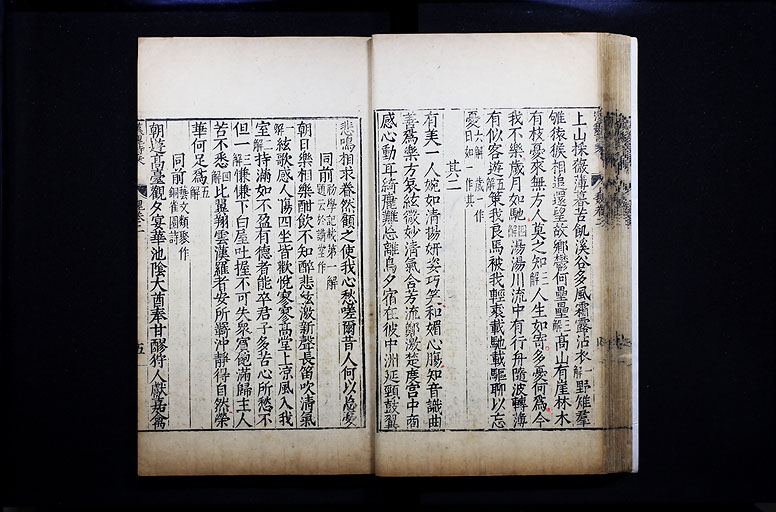 上山採薇薄暮苦飢溪谷多風霜露沾衣一解野雉羣
雊猿猴相追還望故鄉鬱何壘壘二解高山有崖林木
有枝憂來無方人莫之知三解人生如寄多憂何為今
我不樂歲月如馳四解湯湯川流中有行舟隨波轉薄
有似客遊五解策我良馬被我輕裘載馳載驅聊以忘
憂六解 歲一作日如一作其
其二
有美一人婉如清揚妍姿巧笑和媚心膓知音識曲
善為樂方哀絃微妙清氣含芳流鄭激楚度宮中商
感心動耳綺麗難忘離鳥夕宿在彼中洲延頸鼓翼
悲鳴相求眷然顧之使我心愁嗟爾昔人何以忘憂
同前
朝日樂相樂酣飲不知醉悲絃激新聲長笛吹清氣
一解絃歌感人腸四坐皆歡悅寥寥高堂上涼風入我
室二解持滿如不盈有德者能卒君子多苦心所愁不
但一三解慊慊下白屋吐握不可失衆賓飽滿歸主人
苦不悉四解比翼翔雲漢羅者安所羈沖靜得自然榮
華何足為五解
同前藝文類聚作銅雀園詩
朝遊高臺觀夕宴華池陰大酋奉甘醪狩人獻嘉禽